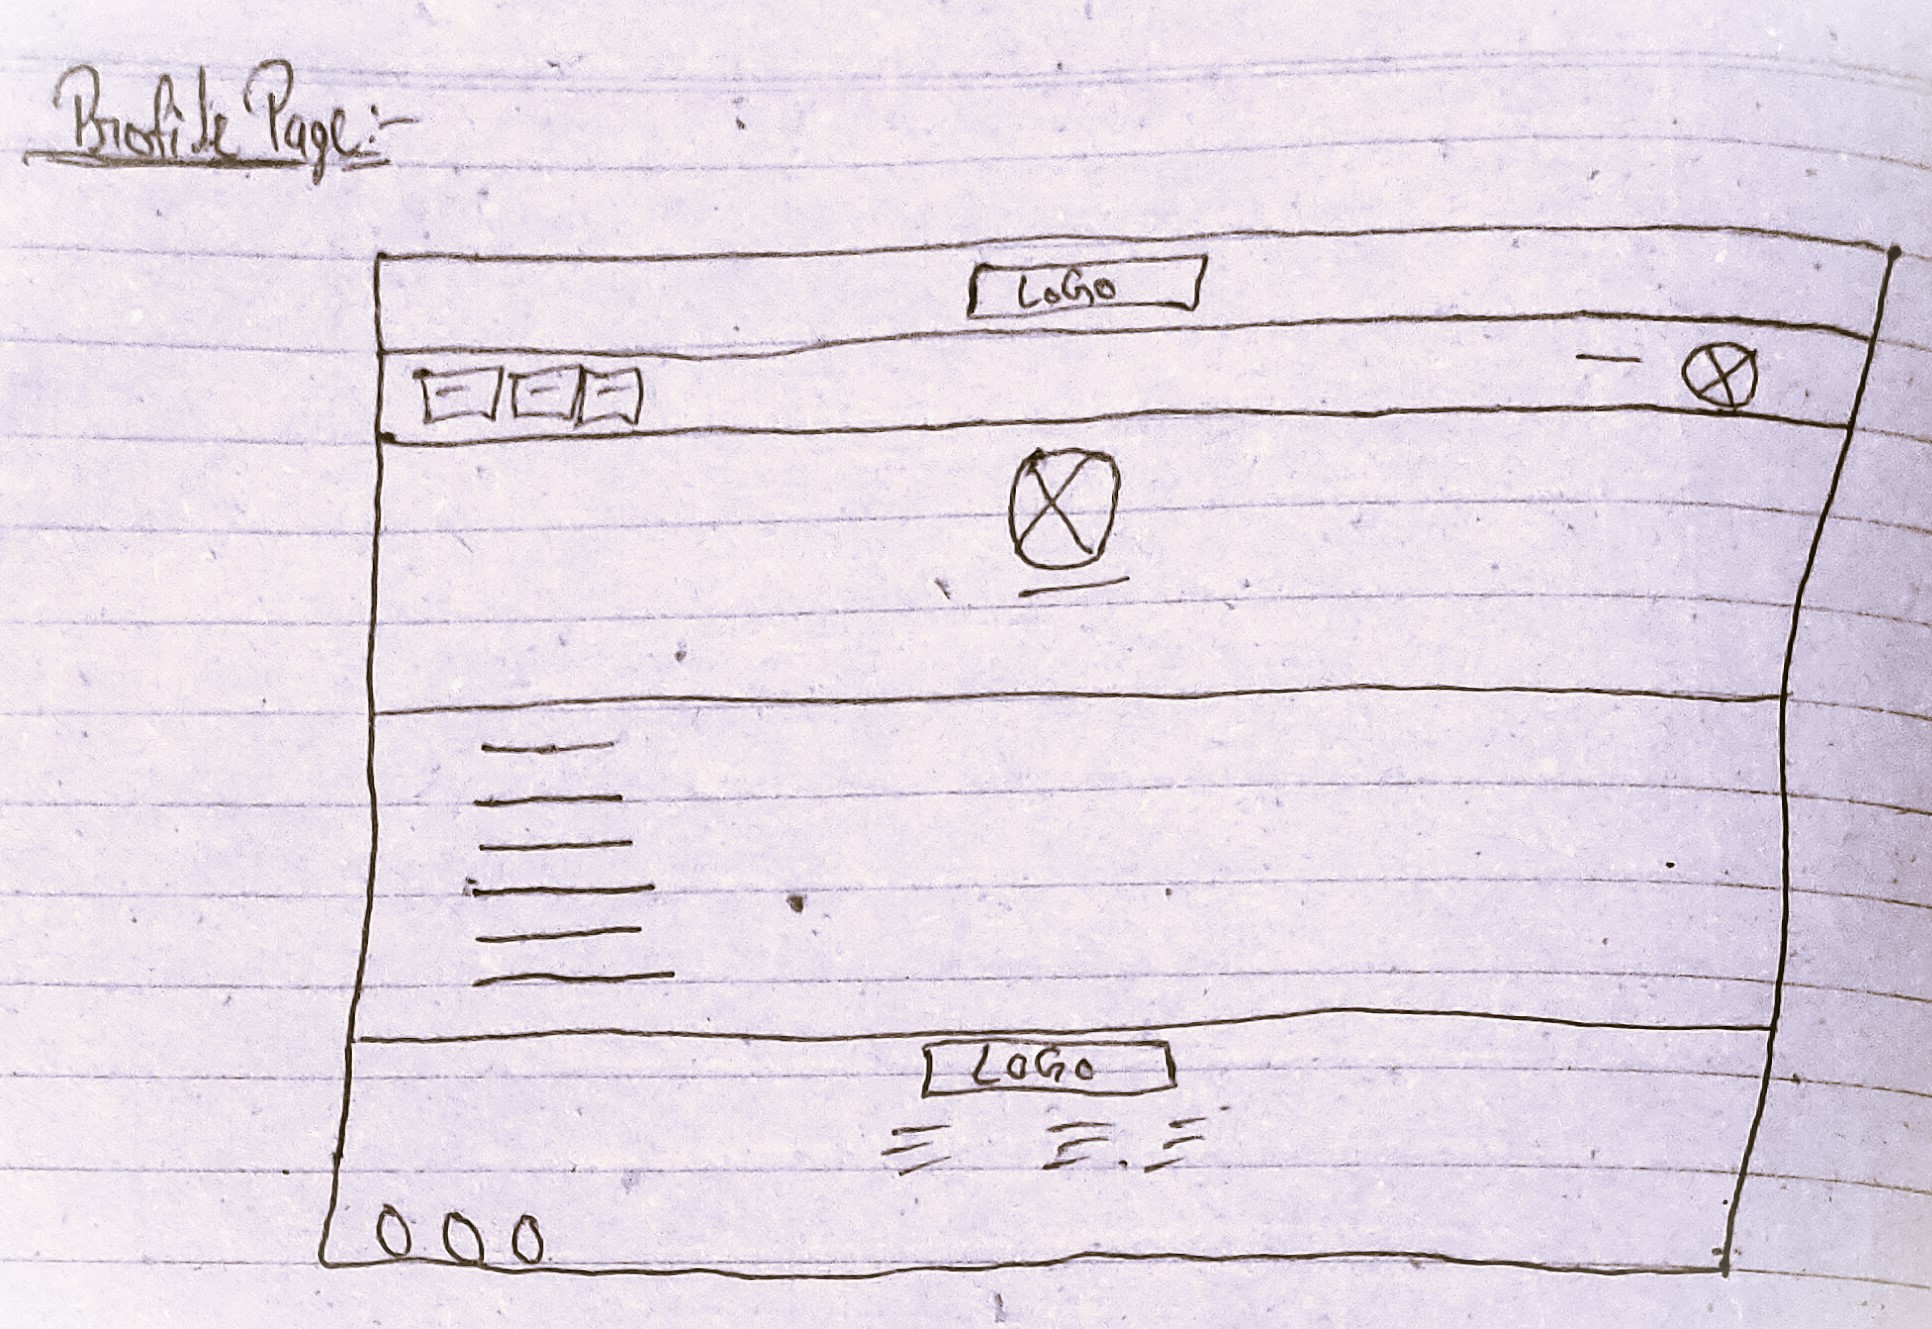 Profile Page:-
LOGO
LOGO